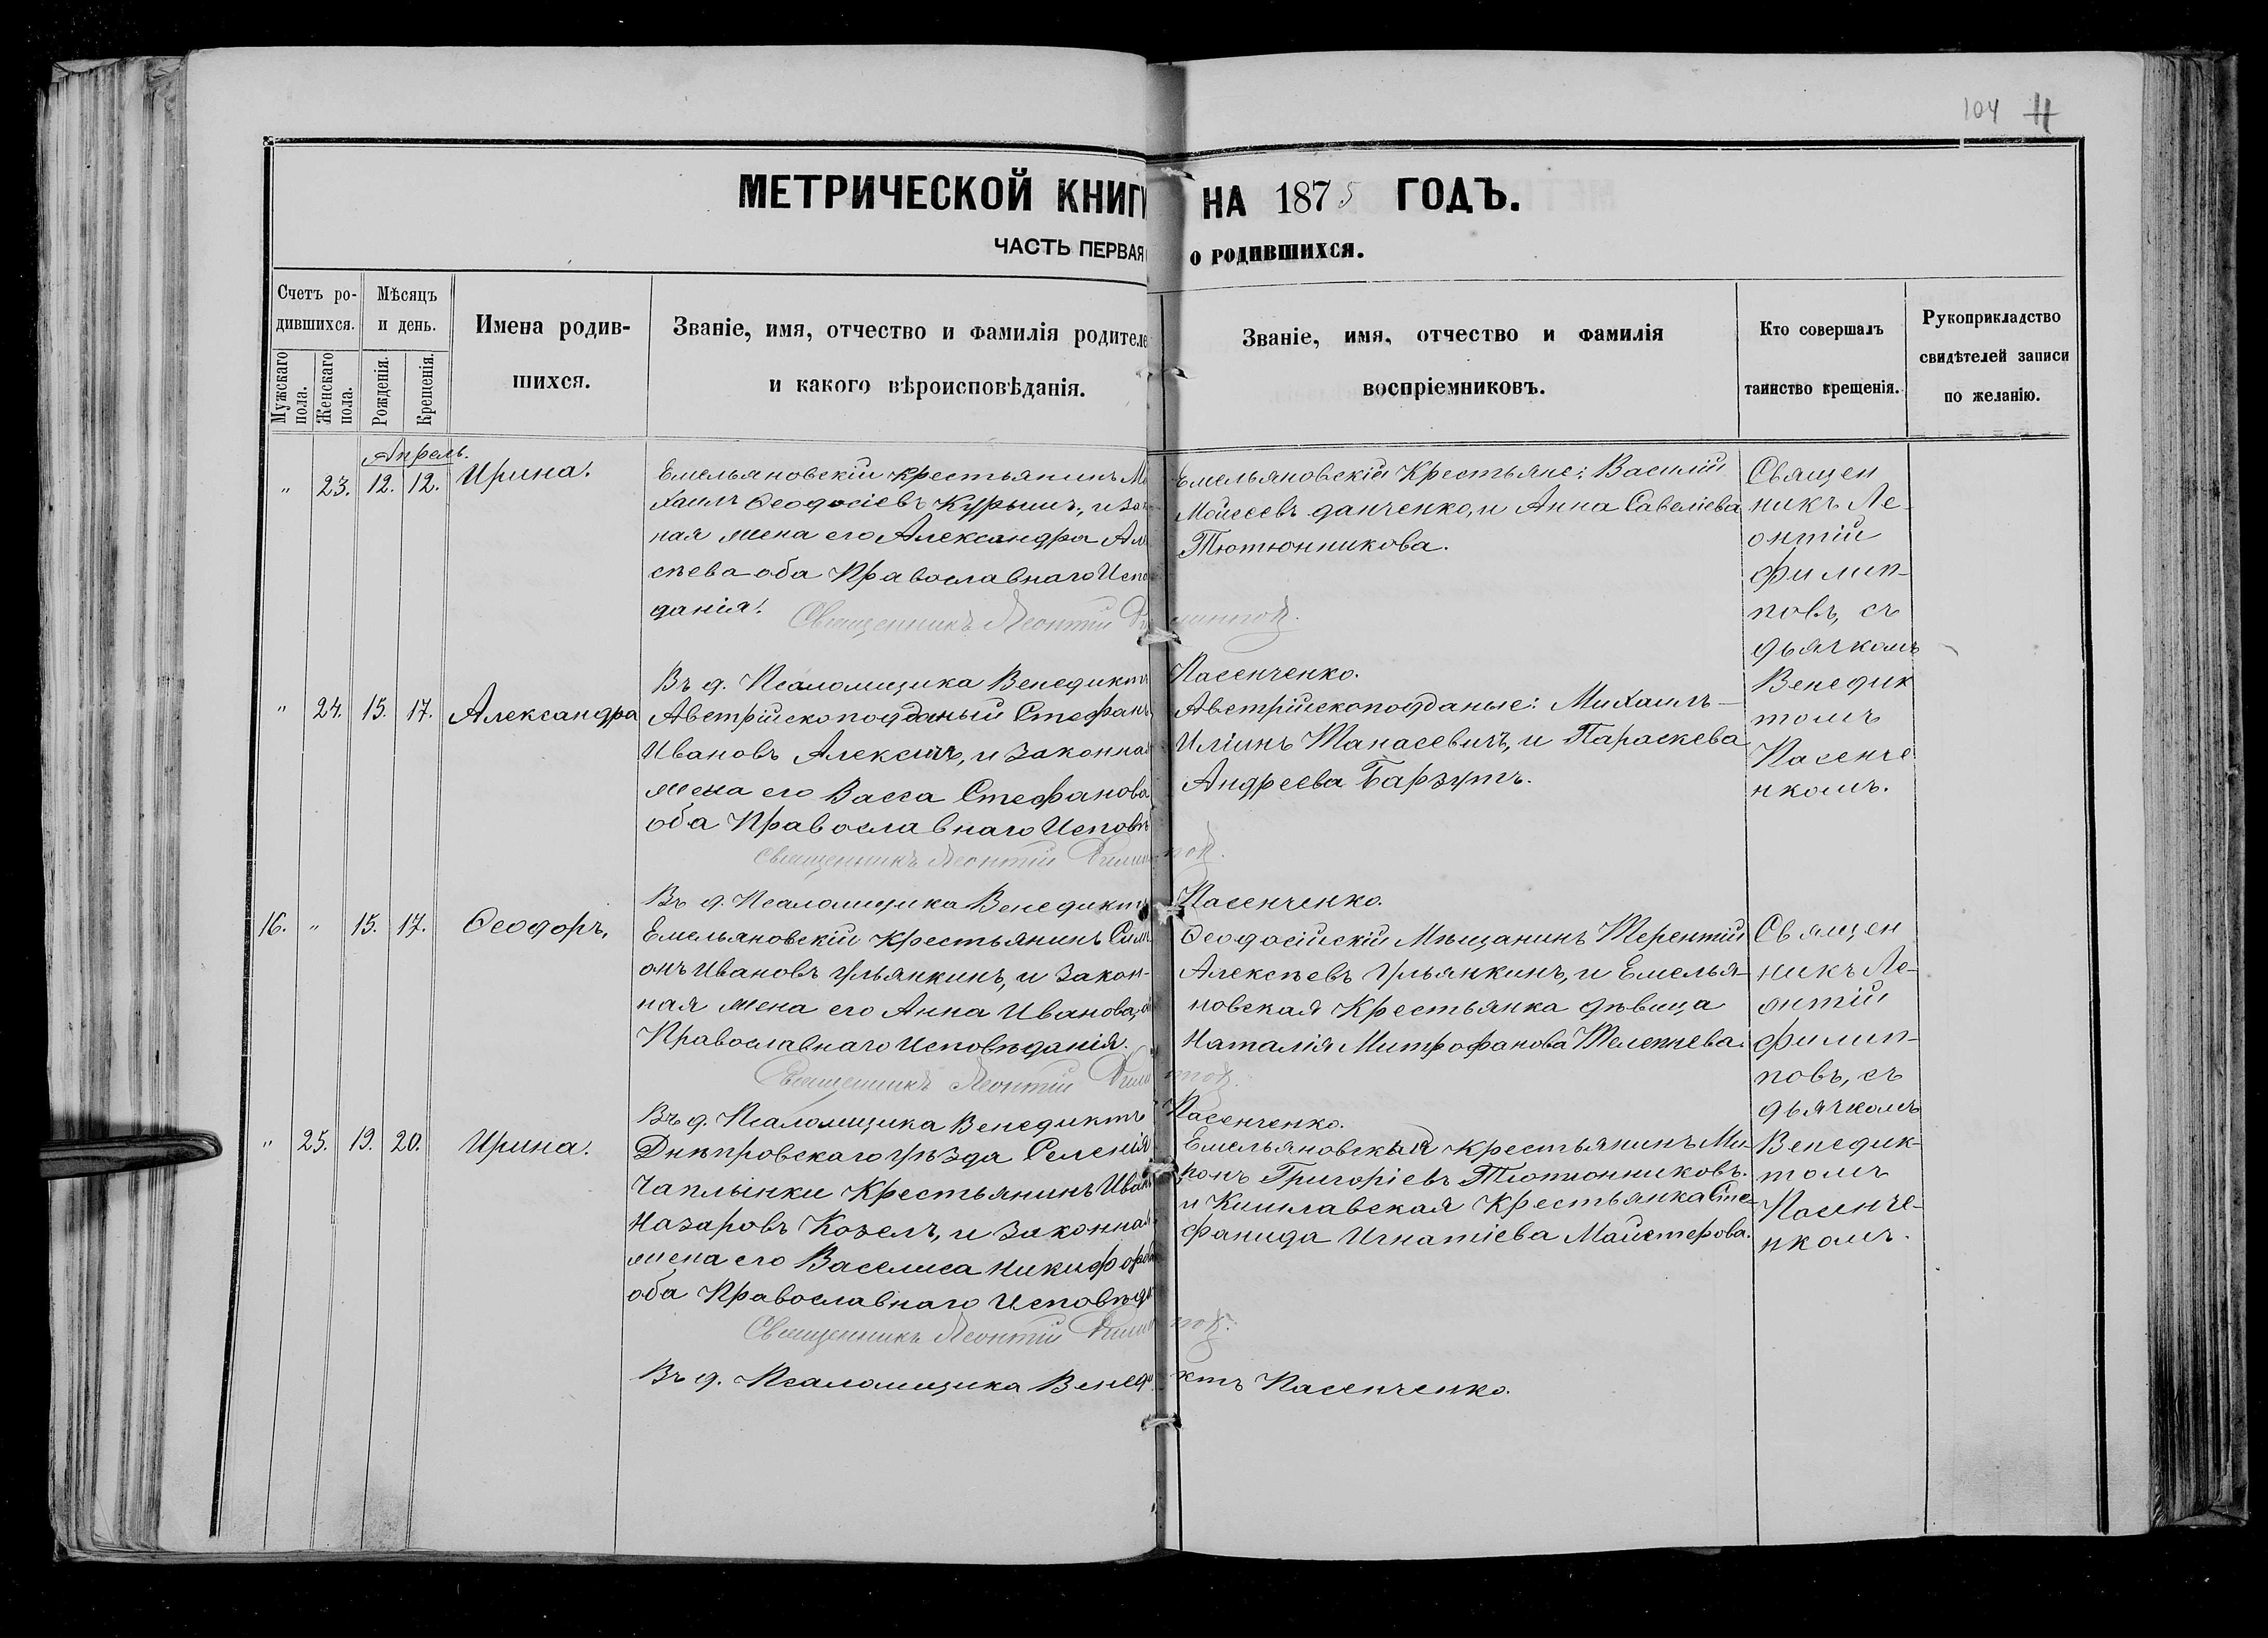 104 11
МЕТРИЧЕСКОЙ КНИГИ НА 1875 ГОДЪ.
ЧАСТЬ ПЕРВАЯ О РОДИВШИХСЯ.
Счетъ родившихся.
Мужскаго пола.
Женскаго пола.
Мѣсяцъ и день.
Рожденія.
Крещенія.
Имена родившихся.
Званіе, имя, отчество и фамилія родителе
и какого вѣроисповѣданія.
Званіе, имя, отчество и фамилія
воспріемниковъ.
Кто совершалъ
таинство крещенія.
Рукоприкладство
свидѣтелей записи
по желанію.
Апрель.
" 23. 12. 12. Ирина.
Емельяновскій крестьянинъ Ми
хаилъ Ѳеодосіевъ Курышъ, и зак
ная жена его Александра Але
сѣева оба Православнаго Испо
данія.
Емельяновскіи Крестьяне: Василій
Моисеевъ Данченко, и Анна Савеліева
Тютюнникова.
Священ
никъ Ле-
онтій
Филип-
повъ, съ
дьячкомъ
Венедик
томъ
Пасенче
нкомъ.
Священникъ Леонтій Филипповъ.
Въ д. Псаломщика Венедиктъ Пасенченко.
" 24. 15. 17. Александра
Австрійскоподданый Стефанъ
Ивановъ Алексичъ, и законная
жена его Васса Стефанова
оба Православнаго Исповѣ
Австрійскоподданые: Михаилъ
Иліинъ Танасевичъ, и Параскева
Андреева Барзутъ.
Священникъ Леонтій Филипповъ.
Въ д. Псаломщика Венедиктъ Пасенченко.
16. " 15. 17. Ѳеодоръ,
Емельяновскій Крестьянинъ Сим
онъ Ивановъ Ульянкинъ, и закон-
ная жена его Анна Иванова, об
Православнаго Исповѣданія.
Ѳеодосійскій Мѣщанинъ Терентій
Алексѣевъ Ульянкинъ, и Емелья-
новская Крестьянка дѣвица
Наталія Митрофанова Телегнева.
Священ
никъ Ле-
онтій
Филип-
повъ, съ
дьячкомъ
Венедик-
томъ
Пасенче-
нкомъ.
Священникъ Леонтій Филипповъ.
Въ д. Псаломщика Венедиктъ Пасенченко.
" 25. 19. 20. Ирина.
Днѣпровскаго уѣзда Селенія
Чаплынки Крестьянинъ Иван
Назаровъ Козелъ, и законная
жена его Василиса Никифоров
оба Православнаго Исповѣд
Емельяновскій Крестьянинъ Ми-
ронъ Григоріевъ Тютюнниковъ.
и Кишлавская Крестьянка Сте-
фанида Игнатіева Майстерова.
Священникъ Леонтій Филипповъ.
Въ д. Псаломщика Венедиктъ Пасенченко.